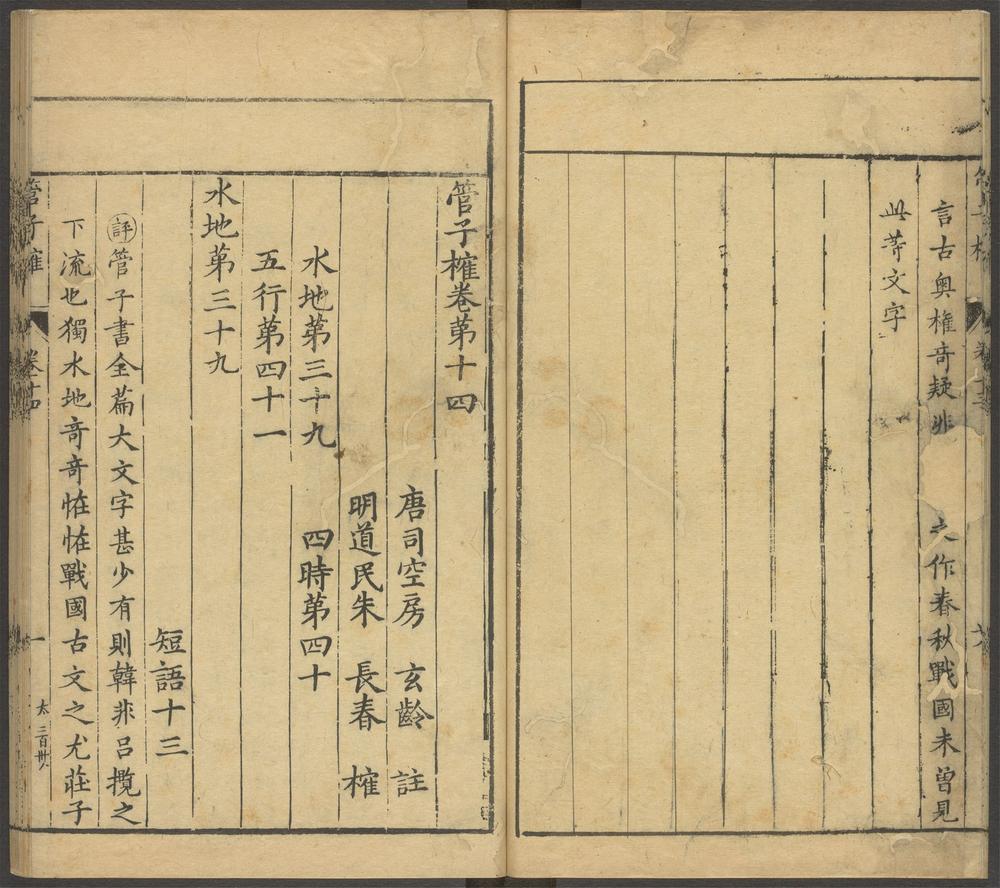 言古奧權奇疑非之作春秋戰國未曾見
此等文字
管子榷卷第十四
唐司空房玄齡註
明道民朱長春榷
水地第三十九 四時第四十
五行第四十一
水地第三十九
短語十三
評管子書全篇大文字甚少有則韓非呂攬之
下流也獨水地奇奇恠恠戰國古文之尤莊子
管子榷 卷十四 一